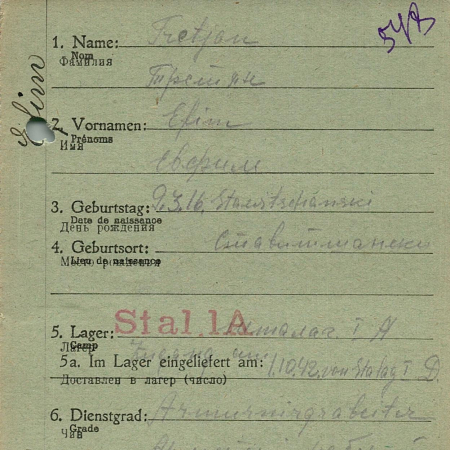 548
Efim
1. Name: Tretjan
Nom
Фамилия
Третян
2. Vornamen: Efim
Prénoms
Имя
3. Geburtstag: 9.3.16.
Date de naissance
День рождения
4. Geburtsort:
Lieu de naissance
Место рождения
5. Lager: Stal. IA Шталаг I A
Camp
Лагерь
5a. Im Lager eingeliefert am: 1.10.42. von Stalag I D.
Доставлен в лагерь (число)
6. Dienstgrad:
Grade
Чин